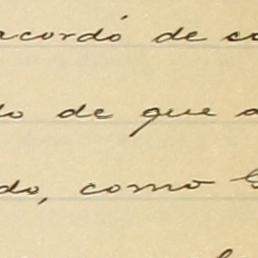 acordó de
de que
do, como